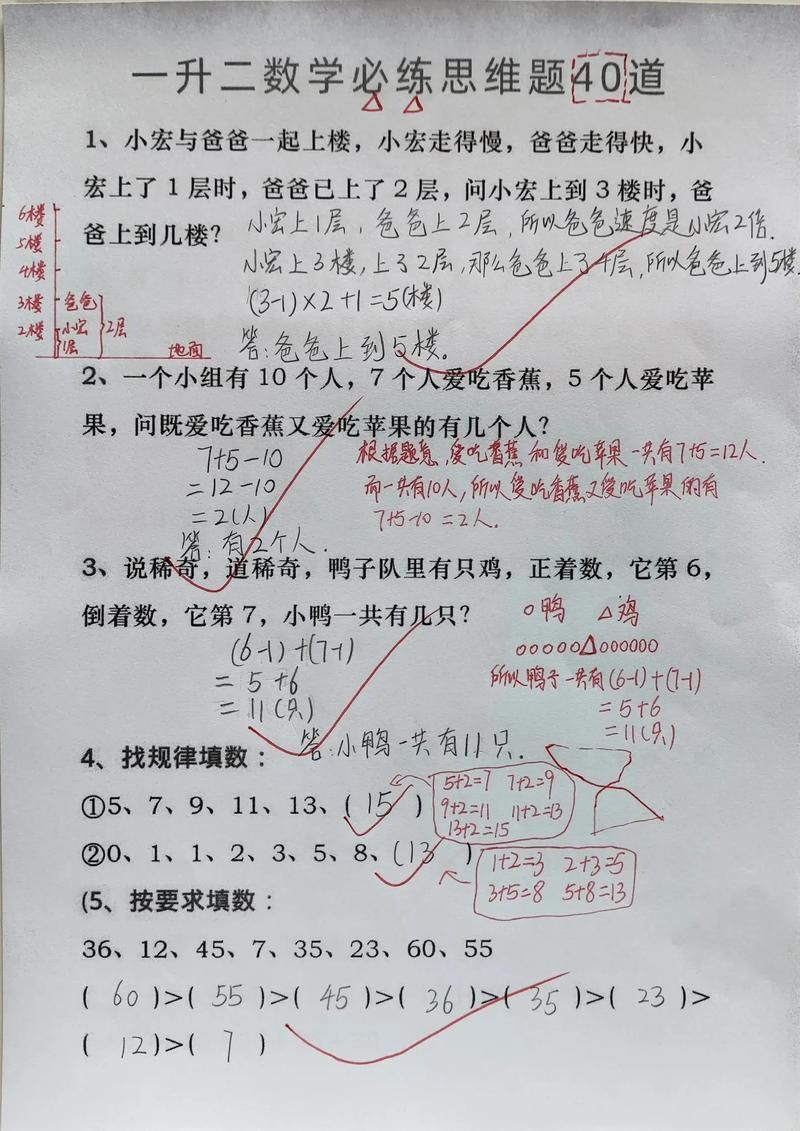 一升二数学必练思维题40道
1、小宏与爸爸一起上楼，小宏走得慢，爸爸走得快，小
宏上了1层时，爸爸已上了2层，问小宏上到3楼时，爸
爸上到几楼？
小宏上1层，爸爸上2层，所以爸爸速度是小宏2倍.
小宏上3楼，上了2层，那么爸爸上了4层，所以爸爸上到5楼.
(3-1)×2+1=5(楼)
答：爸爸上到5楼.
6楼
5楼
4楼
3楼 爸爸
2楼 小宏 2层
1层 地面
2、一个小组有10个人，7个人爱吃香蕉，5个人爱吃苹
果，问既爱吃香蕉又爱吃苹果的有几个人？
7+5-10
=12-10
=2(人)
答：有2个人.
根据题意，爱吃香蕉和爱吃苹果一共有7+5=12人.
而一共有10人，所以爱吃香蕉又爱吃苹果的有
7+5-10=2人.
3、说稀奇，道稀奇，鸭子队里有只鸡，正着数，它第6，
倒着数，它第7，小鸭一共有几只？
(6-1)+(7-1)
=5+6
=11(只)
答：小鸭一共有11只.
○鸭 △鸡
○○○○○△○○○○○○
所以鸭子一共有(6-1)+(7-1)
=5+6
=11(只)
4、找规律填数：
①5、7、9、11、13、(15)
5+2=7 7+2=9
9+2=11 11+2=13
13+2=15
②0、1、1、2、3、5、8、(13)
1+2=3 2+3=5
3+5=8 5+8=13
(5、按要求填数：
36、12、45、7、35、23、60、55
(60)>(55)>(45)>(36)>(35)>(23)>
(12)>(7)